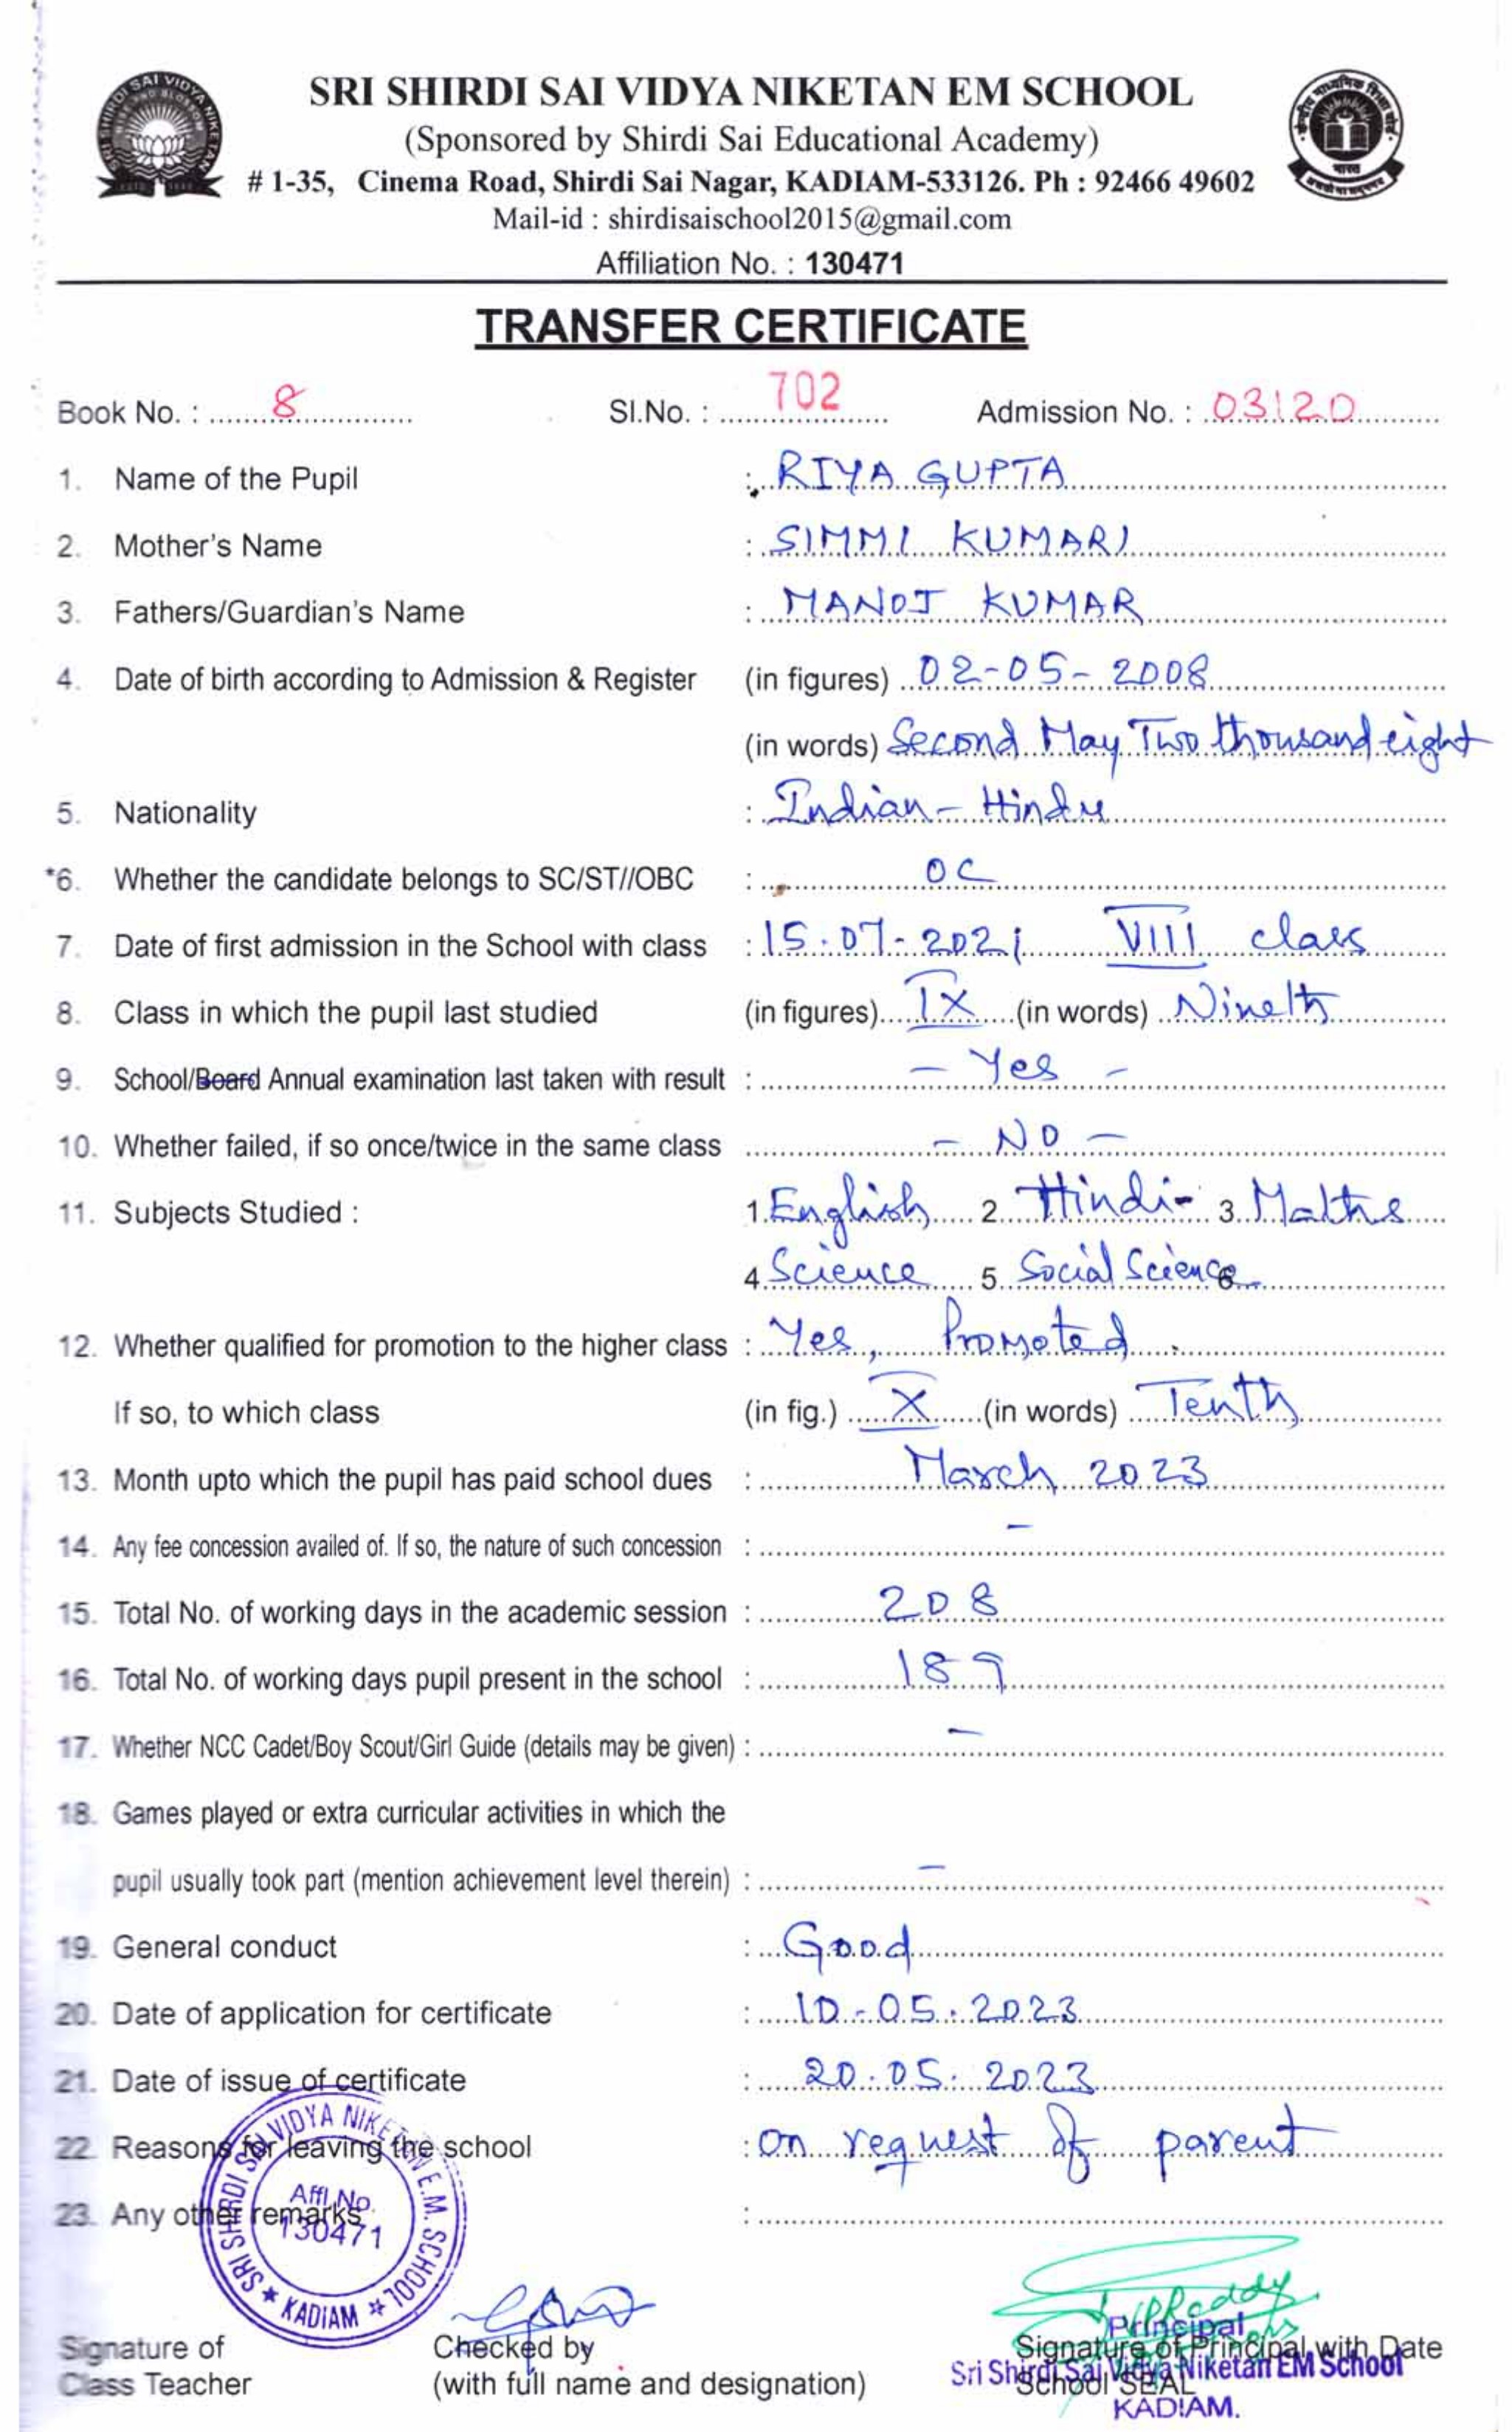 SRI SHIRDI SAI VIDYA NIKETAN EM SCHOOL
(Sponsored by Shirdi Sai Educational Academy)
# 1-35, Cinema Road, Shirdi Sai Nagar, KADIAM-533126. Ph : 92466 49602
Mail-id : shirdisaischool2015@gmail.com
Affiliation No. : 130471
TRANSFER CERTIFICATE
Book No. : 8 Sl.No. : 702 Admission No. : 03120
1. Name of the Pupil : RIYA GUPTA
2. Mother's Name : SIMMI KUMARI
3. Fathers/Guardian's Name : MANOJ KUMAR
4. Date of birth according to Admission & Register (in figures) 02-05-2008
(in words) Second May Two thousand eight
5. Nationality : Indian - Hindu
*6. Whether the candidate belongs to SC/ST//OBC : OC
7. Date of first admission in the School with class : 15.07-2021 VIII class
8. Class in which the pupil last studied (in figures) IX (in words) Nineth
9. School/Board Annual examination last taken with result : - Yes -
10. Whether failed, if so once/twice in the same class - NO -
11. Subjects Studied : 1. English 2. Hindi 3. Maths
4. Science 5. Social Science 6.
12. Whether qualified for promotion to the higher class : Yes, Promoted
If so, to which class (in fig.) X (in words) Tenth
13. Month upto which the pupil has paid school dues : March 2023
14. Any fee concession availed of. If so, the nature of such concession : -
15. Total No. of working days in the academic session : 208
16. Total No. of working days pupil present in the school : 189
17. Whether NCC Cadet/Boy Scout/Girl Guide (details may be given) : -
18. Games played or extra curricular activities in which the
pupil usually took part (mention achievement level therein) : -
19. General conduct : Good
20. Date of application for certificate : 10-05.2023
21. Date of issue of certificate : 20.05.2023
22. Reasons for leaving the school : on request of parent
23. Any other remarks :
SRI SHIRDI SAI VIDYA NIKETAN E.M. SCHOOL
Affl.No.
130471
KADIAM
Signature of Class Teacher
Checked by
(with full name and designation)
Principal
Signature of Principal with Date
Sri Shirdi Sai Vidya Niketan EM School
School SEAL
KADIAM.